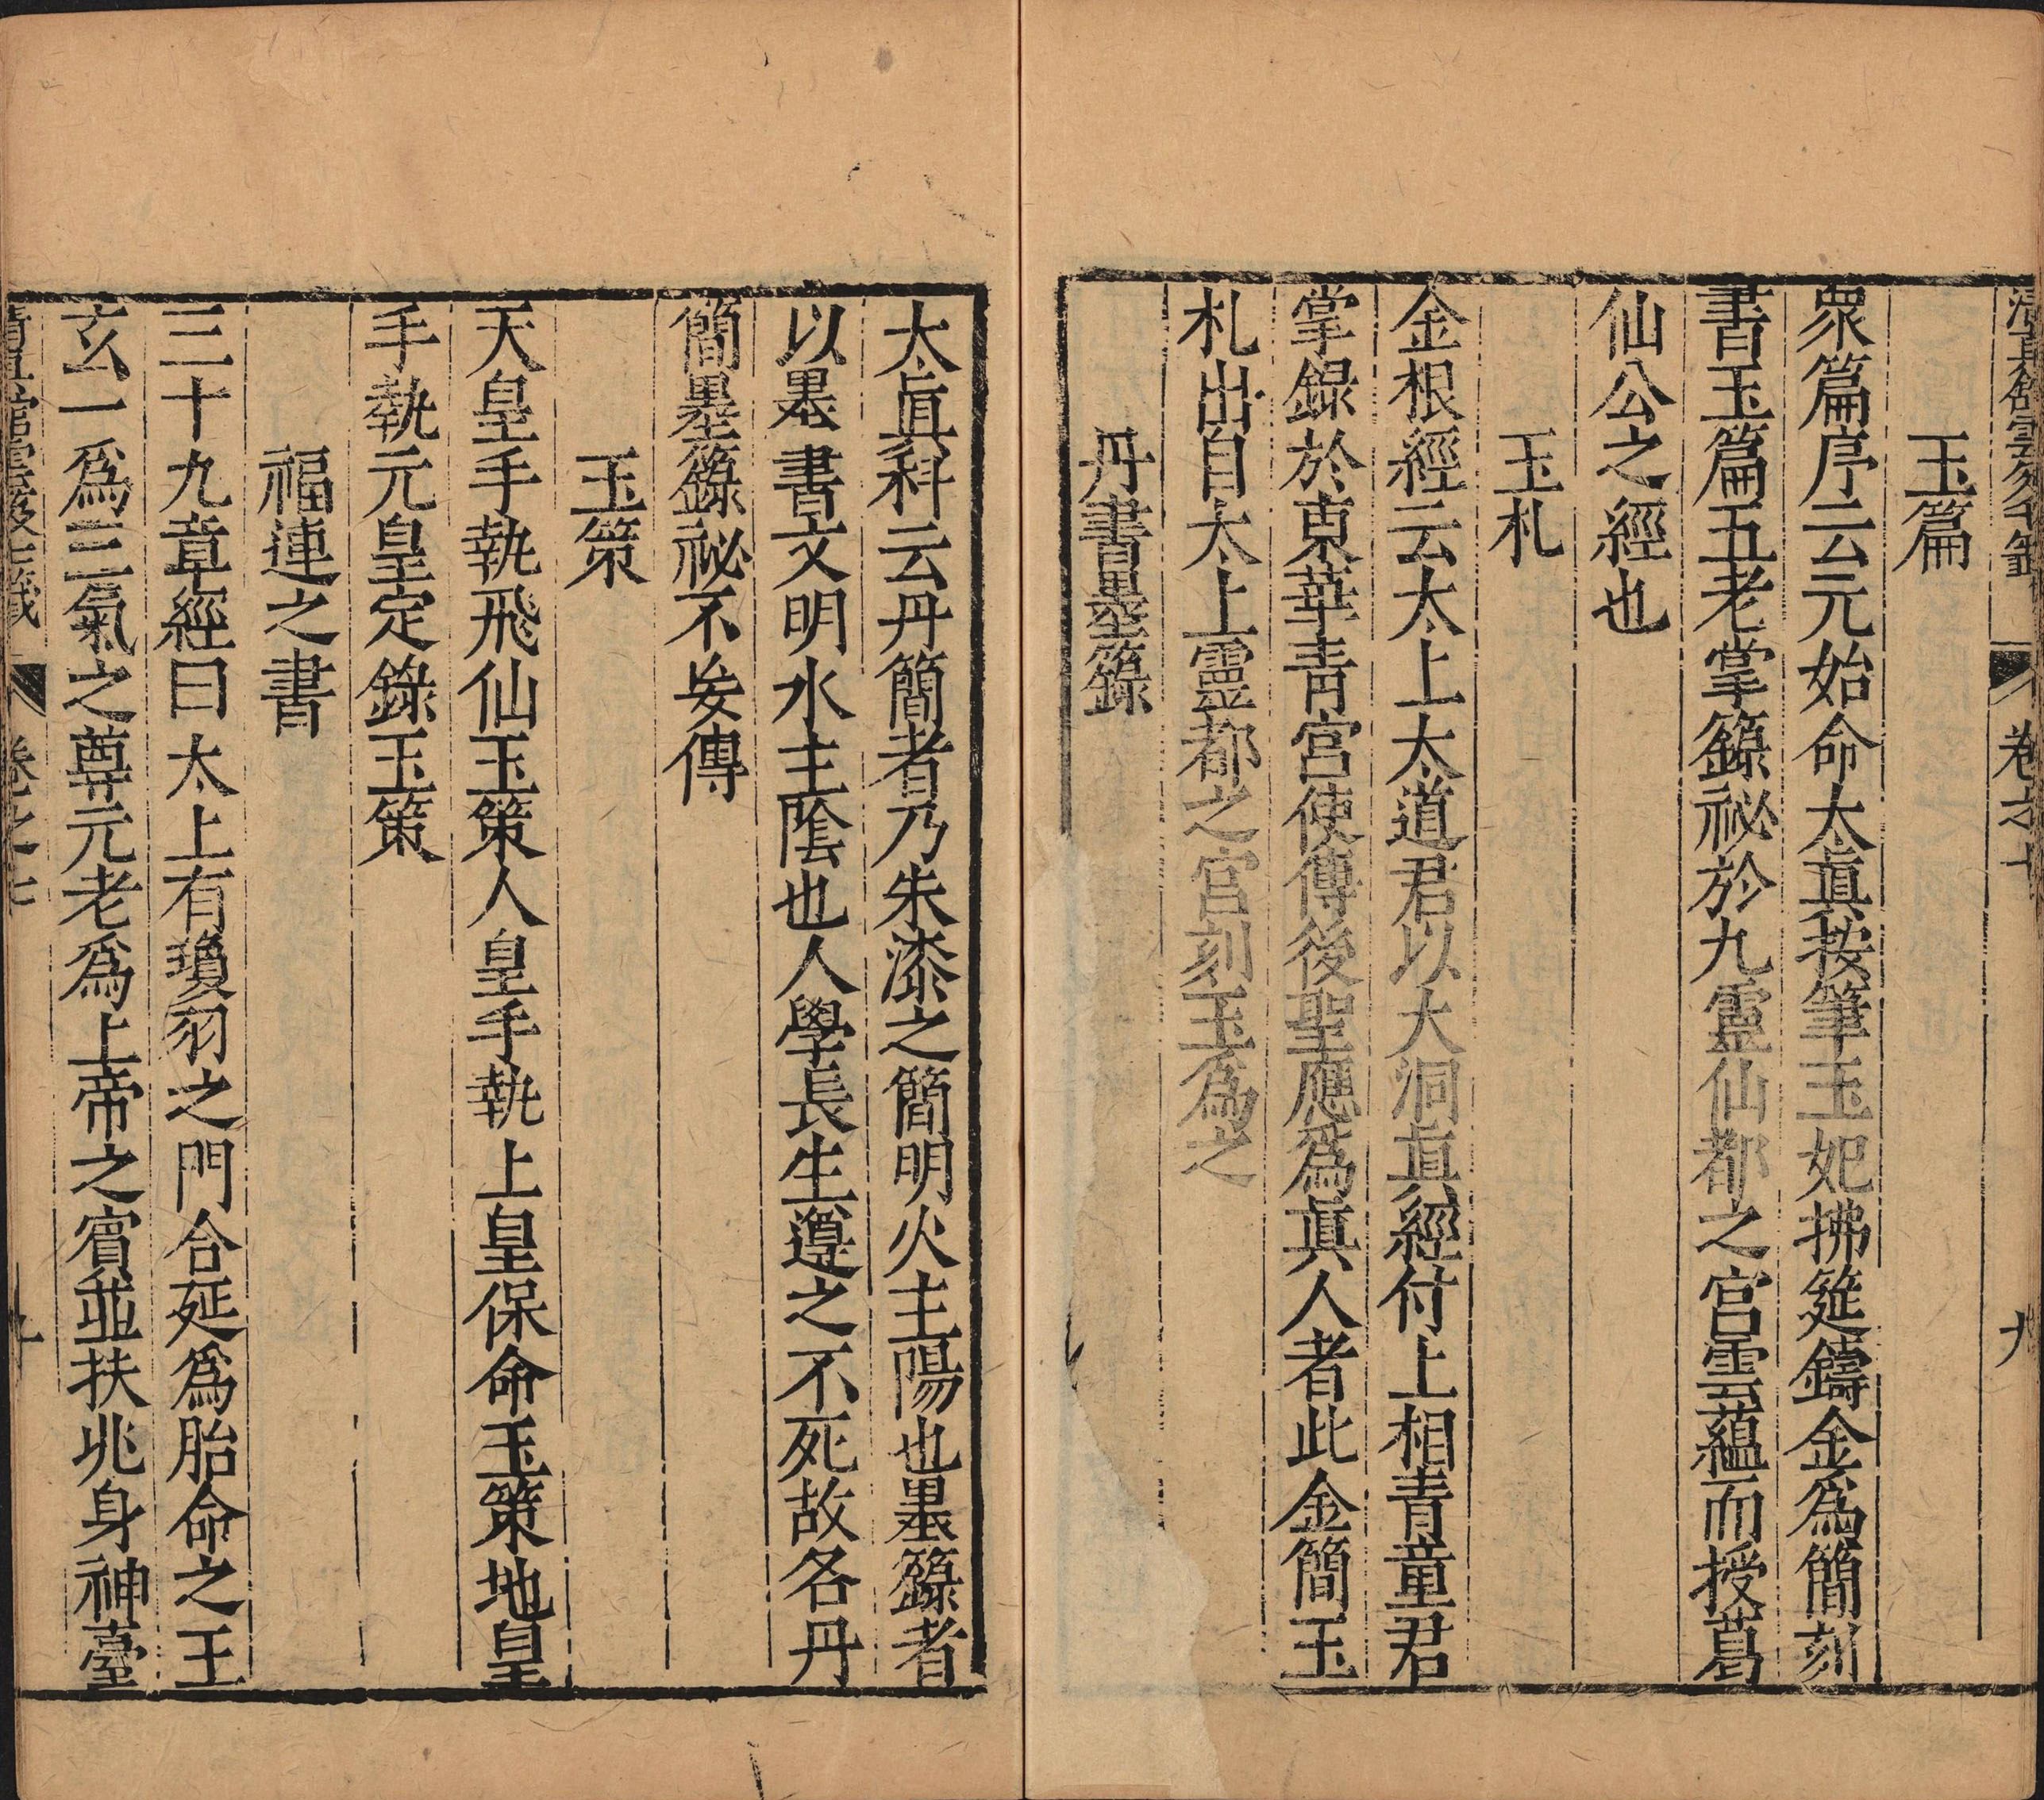 玉篇
衆篇序云元始命太眞按筆玉妃拂筵鑄金爲簡刻
書玉篇五老掌籙祕於九靈仙都之宮雲蘊而授葛
仙公之經也
玉札
金根經云太上大道君以大洞眞經付上相青童君
掌録於東華青宮使傳後聖應爲眞人者此金簡玉
札出自太上靈都之宮刻玉爲之
丹書墨籙
太眞科云丹簡者乃朱漆之簡明火主陽也墨籙者
以墨書文明水主陰也人學長生遵之不死故名丹
簡墨籙祕不妄傳
玉策
天皇手執飛仙玉策人皇手執上皇保命玉策地皇
手執元皇定錄玉策
福連之書
三十九章經曰太上有瓊羽之門合延爲胎命之王
玄一爲三氣之尊元老爲上帝之賓並扶兆身神臺
卷之七